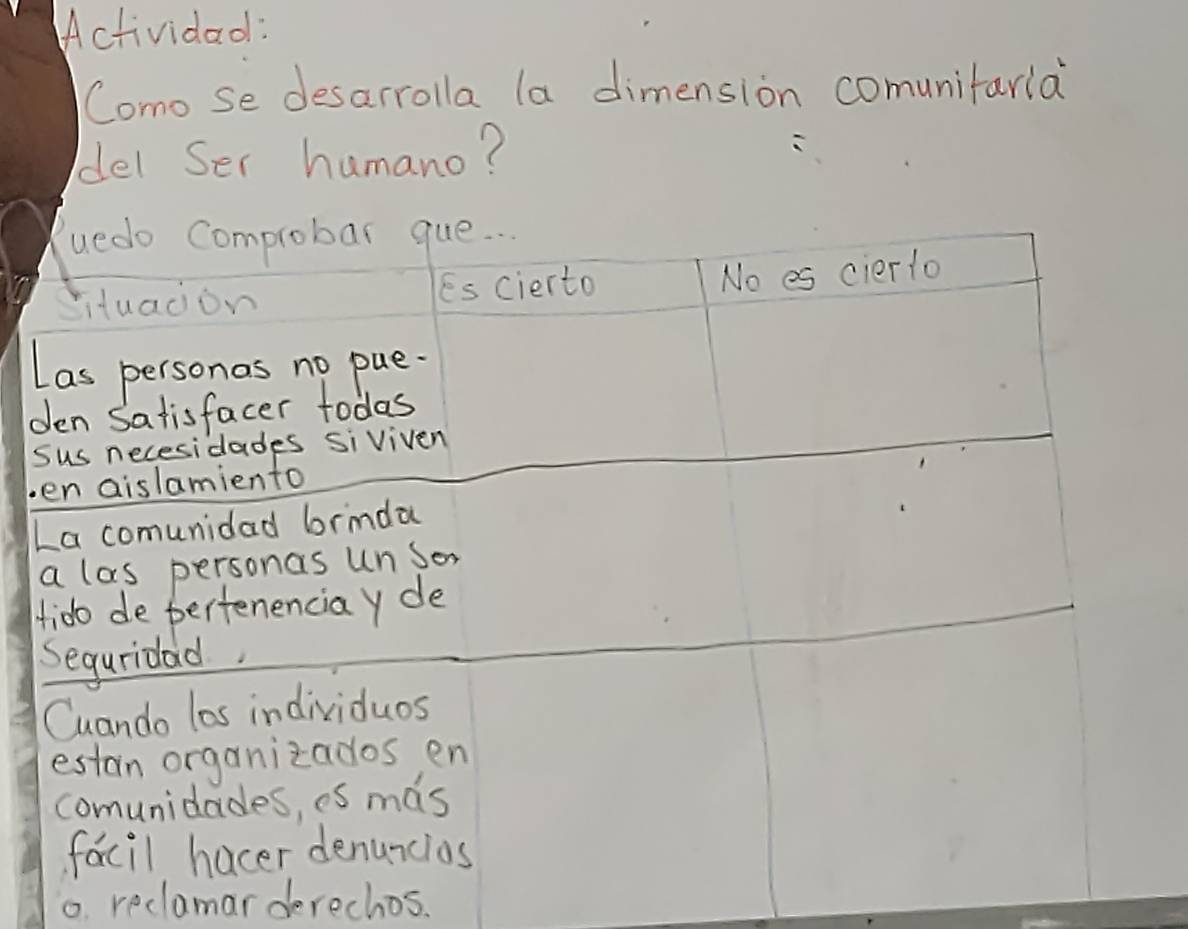 Actividad:
Como se desarrolla la dimensión comunitaria
del Ser humano?
Puedo Comprobar que...
Situación Es Cierto No es cierto
Las personas no pue-
den satisfacer todas
sus necesidades si viven
en aislamiento
La comunidad brinda
a las personas un Sen
tido de pertenencia y de
Seguridad.
Cuando los individuos
estan organizados en
comunidades, es más
fácil hacer denuncias
o reclamar derechos.